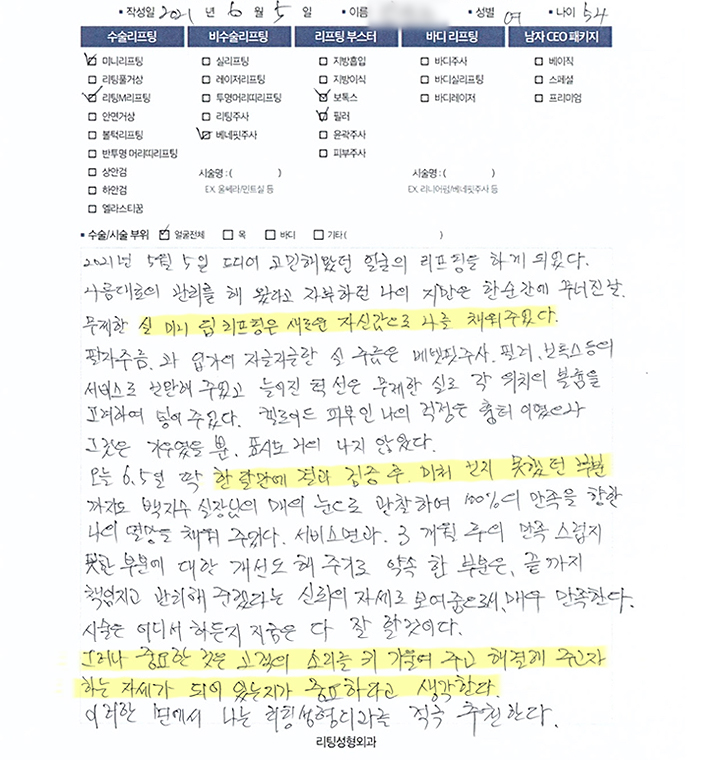 • 작성일 2021 년 6 월 5 일 • 이름 • 성별 여 • 나이 54
수술리프팅 비수술리프팅 리프팅 부스터 바디 리프팅 남자 CEO 패키지
미니리프팅 실리프팅 지방흡입 바디주사 베이직
리팅풀거상 레이저리프팅 지방이식 바디실리프팅 스페셜
리팅M리프팅 투명머리띠리프팅 보톡스 바디레이저 프리미엄
안면거상 리팅주사 필러
볼턱리프팅 베네핏주사 윤곽주사
반투명 머리띠리프팅 피부주사
상안검 시술명 : ( ) 시술명 : ( )
하안검 EX. 울쎄라/민트실 등 EX. 리니어펌/베네핏주사 등
엘라스티꿈
• 수술/시술 부위 얼굴전체 목 바디 기타 ( )
2021년 5월 5일 드디어 고민해왔던 얼굴의 리프팅을 하게 되었다.
나름대로의 관리를 해 왔다고 자부하던 나의 자만은 한순간에 무너진 날.
무제한 실 미니 팀 리프팅은 새로운 자신감으로 나를 채워주었다.
팔자주름과 입가의 자글자글한 실 주름은 베넷핏주사, 필러, 보톡스등의
서비스로 보완해 주었고 늘어진 턱선은 무제한 실로 각 위치의 볼륨을
고려하여 넣어 주었다. 켈로이드 피부인 나의 걱정은 흉터 이였으나
그것은 기우였을 뿐, 표시도 거의 나지 않았다.
오늘 6.5일 딱 한 달만에 결과 검증 후, 미처 먼지 못했던 부분
까지도 백지수 실장님의 매의 눈으로 관찰하여 100%의 만족을 향한
나의 열망을 채워 주었다. 서비스면과, 3 개월 후의 만족 스럽지
못한 부분에 대한 개선도 해 주기로 약속 한 부분은, 끝까지
책임지고 관리해 주겠다는 신뢰의 자세로 보여줌으로서, 매우 만족한다.
시술은 어디서 하든지 지금은 다 잘 할것이다.
그러나 중요한 것은 고객의 소리를 귀 기울여 주고 해결해 주고자
하는 자세가 되어 있는지가 중요하라고 생각한다.
이러한 면에서 나는 리팅성형외과를 적극 추천한다.
리팅성형외과